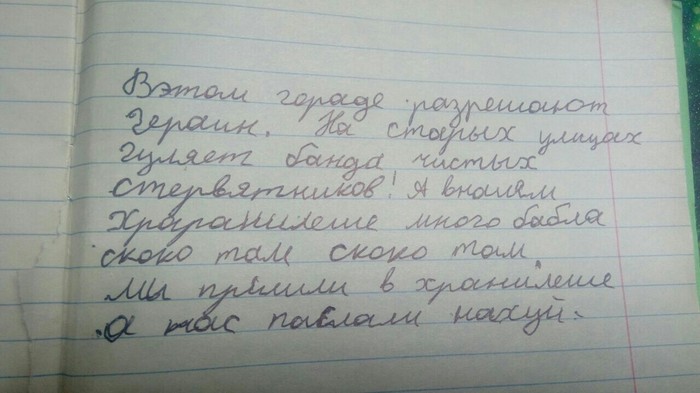 Вэтом гораде разрешают
Гераин. На старых улицах
Гуляет банда чистых
Стервятников! А внашям
Храранилеше много бабла
скоко там скоко там.
Мы пришли в хранилеше
а нас паслали нахуй.